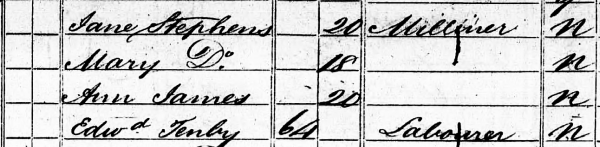 Jane Stephens 20 Milliner N
Mary Do 18 N
Ann James 20 N
Edwd Tenby 64 Labourer N